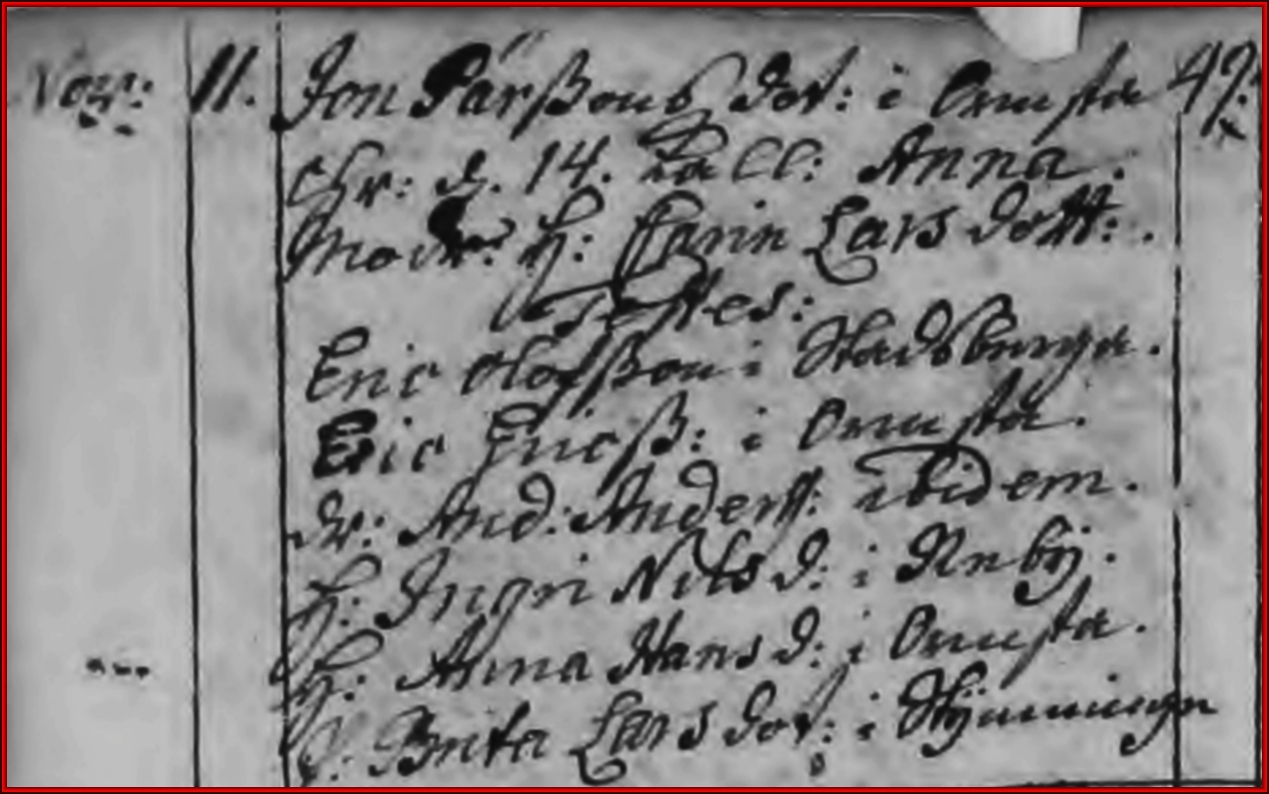 Nov: 11. Jon Pärßons dot: i Ormsta 49:
Chr: d. 14. kall: Anna.
Modr: H: Karin Lars dott:.
Testes:
Eric Olofßon i Stadsberga.
Eric Ericß: i Ormsta.
dr: And: Anderss: ibidem.
H: Ingri Nils d: i Reby.
H: Anna Hans d: i Ormsta.
P: Brita Lars dot: i